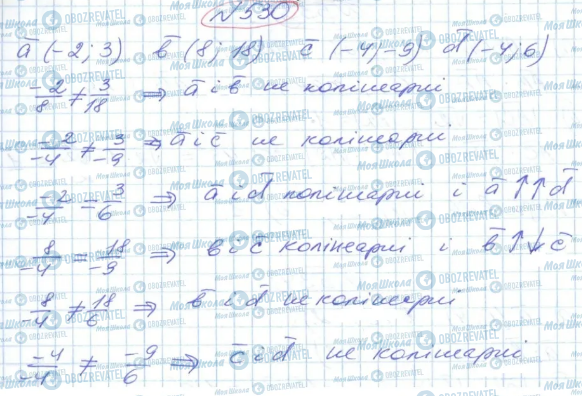 №530
a̅ (-2; 3) b̅ (8; 18) c̅ (-4; -9) d̅ (-4; 6)
-2/8 ≠ 3/18 ⇒ a̅ і b̅ не колінеарні
-2/-4 ≠ 3/-9 ⇒ a̅ і c̅ не колінеарні
-2/-4 = 3/6 ⇒ a̅ і d̅ колінеарні і a̅ ↑↑ d̅
8/-4 = 18/-9 ⇒ b̅ і c̅ колінеарні і b̅ ↑↓ c̅
8/-4 ≠ 18/6 ⇒ b̅ і d̅ не колінеарні
-4/-4 ≠ -9/6 ⇒ c̅ і d̅ не колінеарні